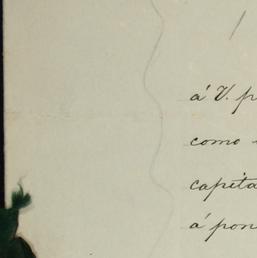 á V. p
como
capita
á pon